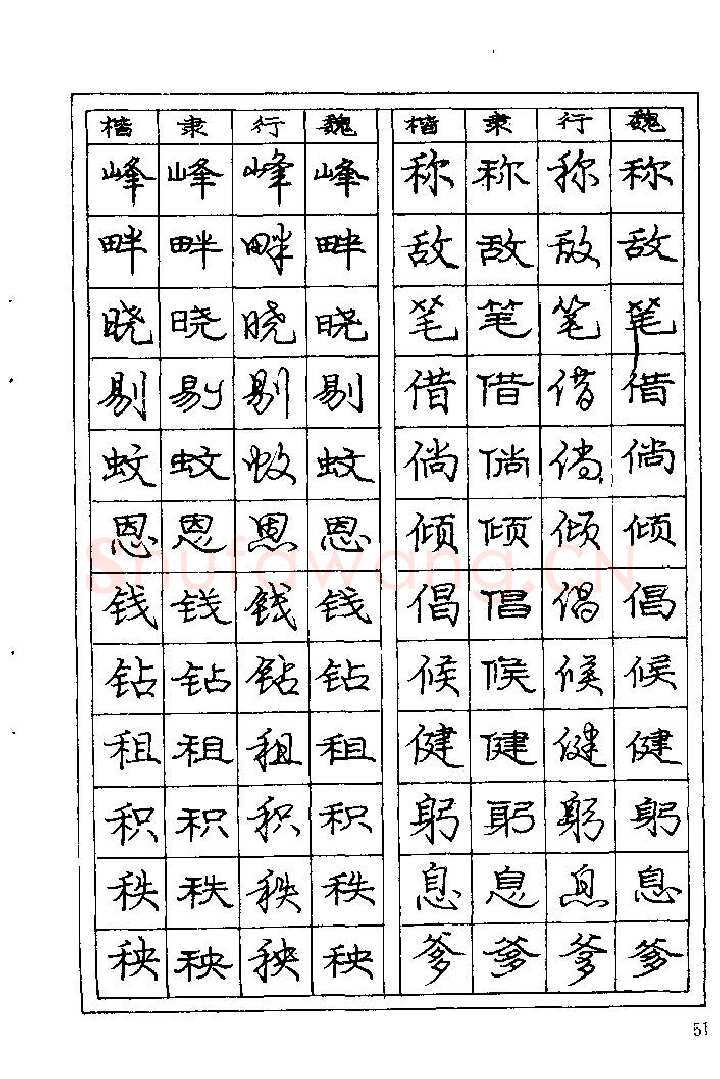 楷 隶 行 魏 楷 隶 行 魏
峰 峰 峰 峰 称 称 称 称
畔 畔 畔 畔 敌 敌 敌 敌
晓 晓 晓 晓 笔 笔 笔 笔
剔 剔 剔 剔 借 借 借 借
蚊 蚊 蚊 蚊 倘 倘 倘 倘
恩 恩 恩 恩 倾 倾 倾 倾
钱 钱 钱 钱 倡 倡 倡 倡
钻 钻 钻 钻 候 候 候 候
租 租 租 租 健 健 健 健
积 积 积 积 躬 躬 躬 躬
秩 秩 秩 秩 息 息 息 息
秧 秧 秧 秧 爹 爹 爹 爹
Shufawang.CN
51